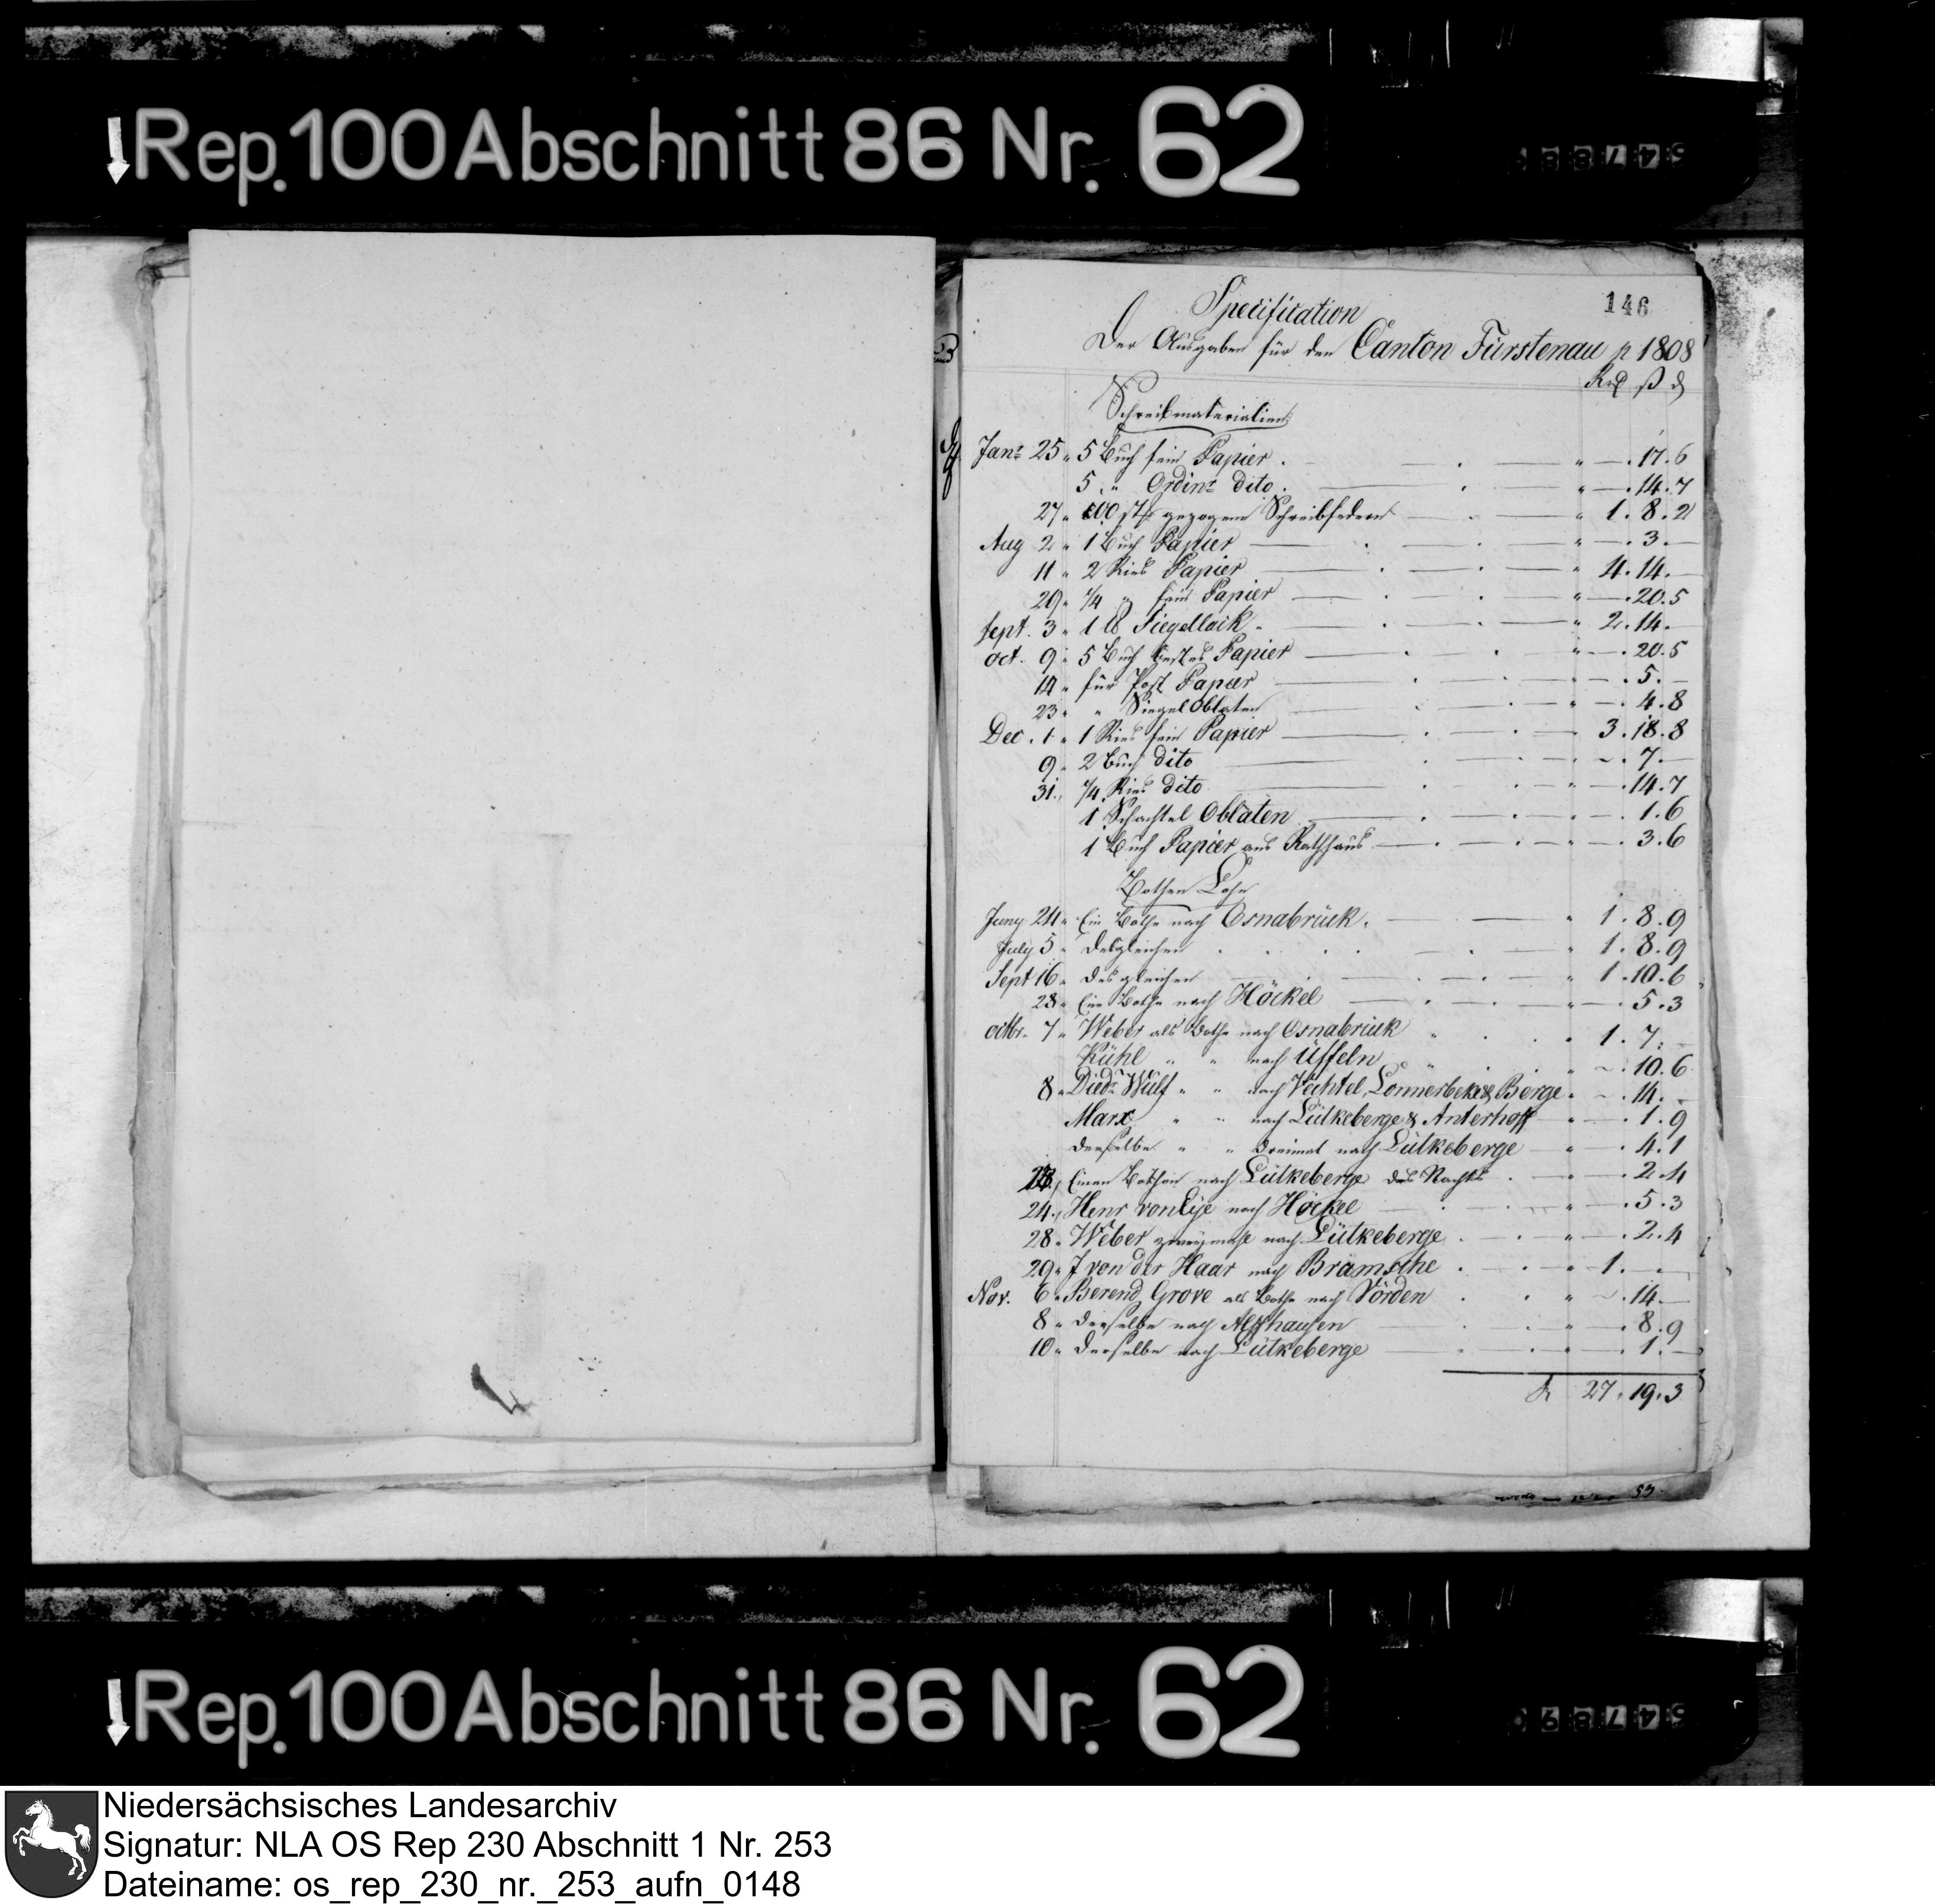 Rep. 100 Abschnitt 86 Nr. 62
146
Specification
Der Ausgaben für den Canton Fürstenau p 1808
Rd ß d
Schreibmaterialien
Janr 25 " 5 Buch fein Papier . " — . 17 . 6
5 " Ordinr dito . " — . 14 . 7
27 " 200 st gezogene Schreibfedern " 1 . 8 . 2
Aug 2 " 1 Buch Papier " — . 3 . —
11 " 2 Ries Papier " 4 . 14 . —
29 " 1/4 " fein Papier " — . 20 . 5
Sept. 3 " 1 lb Siegellack . " 2 . 14 . —
Oct. 9 " 5 Buch bestes Papier " — . 20 . 5
14 " für Post Papier " — . 5 . —
23 " " Siegel Oblaten " — . 4 . 8
Dec . 1 " 1 Ries fein Papier 3 . 18 . 8
9 " 2 Buch dito " — . 7 . —
31 " 1/4 Ries dito " — . 14 . 7
1 Schachtel Oblaten " — . 1 . 6
1 Buch Papier aus Rathhaus " — . 3 . 6
Bothen Lohn
Juny 24 " Ein Bothe nach Osnabrück . " 1 . 8 . 9
July 5 " desgleichen " 1 . 8 . 9
Sept 16 " desgleichen " 1 . 10 . 6
28 " Ein Bothe nach Höckel " — . 5 . 3
octbr. 7 " Weber als Bothe nach Osnabrück " 1 . 7 . —
Kühl " " nach Üffeln " — . 10 . 6
8 " Diedr Wulf " " nach Vechtel, Lonnerbeke & Berge " — . 14 . —
Marx " " nach Lütkeberge & Anterhoff " — . 1 . 9
derselbe " " dreimal nach Lütkeberge " — . 4 . 1
Einen Bothen nach Lütkeberge des Nachts " — . 2 . 4
24 " Henr von Eye nach Höckel " — . 5 . 3
28 " Weber zweymahl nach Lütkeberge " — . 2 . 4
29 " J von der Haar nach Bramsche " 1 . — . —
Nov. 6 " Berend Grove als Bothe nach Vörden " — . 14 . —
8 " derselbe nach Alfhausen " — . 8 . 9
10 " derselbe nach Lütkeberge " — . 1 . —
27 . 19 . 3
53
Rep. 100 Abschnitt 86 Nr. 62
Niedersächsisches Landesarchiv
Signatur: NLA OS Rep 230 Abschnitt 1 Nr. 253
Dateiname: os_rep_230_nr._253_aufn_0148